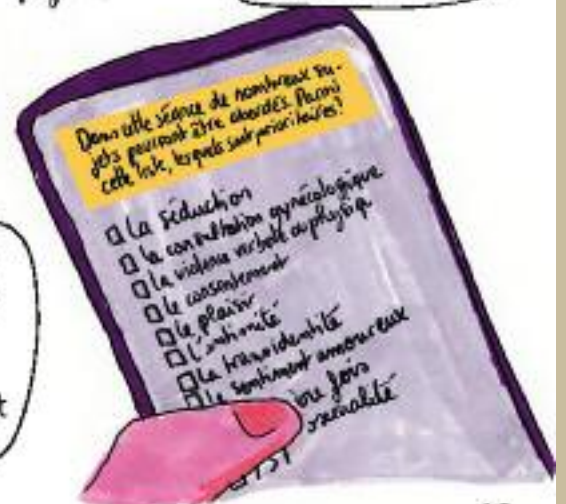 Dans cette séance de nombreux su-
jets pourront être abordés. Parmi
cette liste, lesquels sont prioritaires?
□ La séduction
□ la consultation gynécologique
□ La violence verbale ou physiqu
□ le consentement
□ le plaisir
□ l'intimité
□ La transidentité
□ le sentiment amoureux
fois
sexualité
□ IST
t